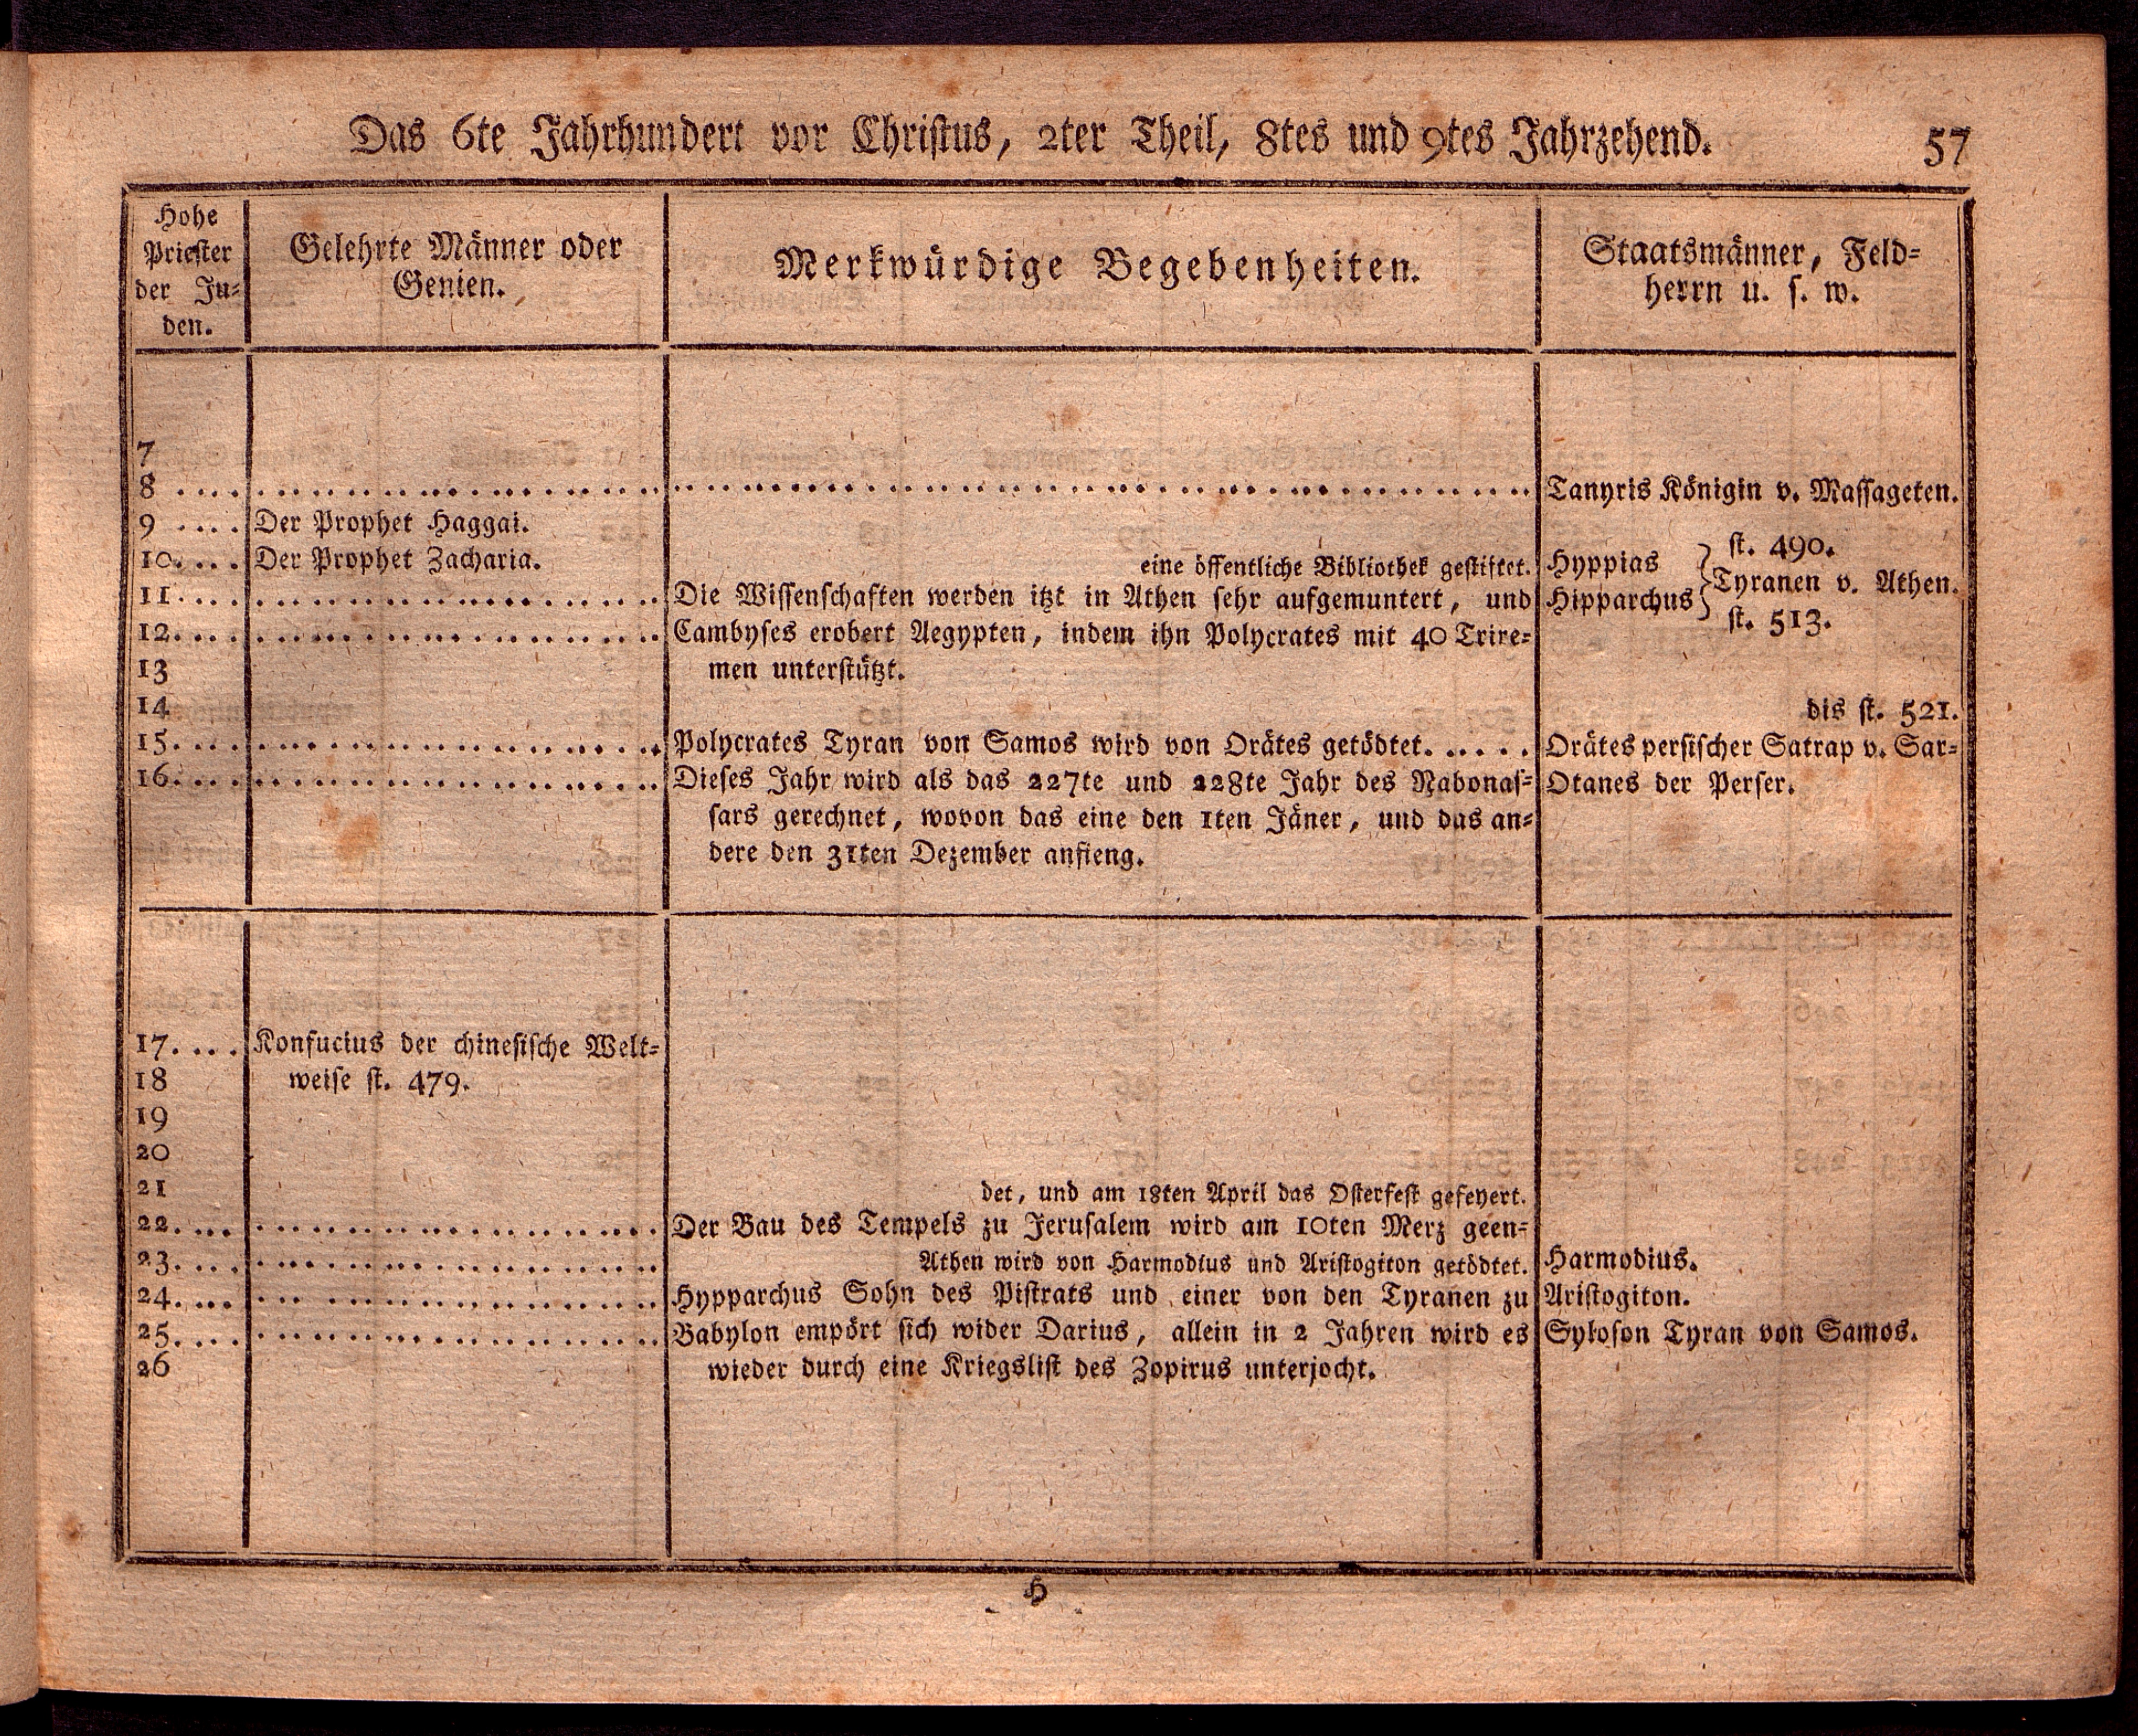 Das 6te Jahrhundert vor Christus, 2ter Theil, 8tes und 9tes Jahrzehend. 57
Hohe
Priester
der Ju-
den.
Gelehrte Männer oder
Genien.
Merkwürdige Begebenheiten.
Staatsmänner, Feld-
herrn u. s. w.
7
8 .... Tanyris Königin v. Massageten.
9 .... Der Prophet Haggai.
st. 490.
10.... Der Prophet Zacharia. eine öffentliche Bibliothek gestiftet. Hyppias
Tyranen v. Athen.
11.... Die Wissenschaften werden itzt in Athen sehr aufgemuntert, und Hipparchus
st. 513.
12.... Cambyses erobert Aegypten, indem ihn Polycrates mit 40 Trire-
13 men unterstützt.
14 dis st. 521.
15.... Polycrates Tyran von Samos wird von Orätes getödtet. .... Orätes persischer Satrap v. Sar-
16.... Dieses Jahr wird als das 227te und 228te Jahr des Nabonas- Otanes der Perser.
sars gerechnet, wovon das eine den 1ten Jäner, und das an-
dere den 31ten Dezember anfieng.
17.... Konfucius der chinesische Welt-
18 weise st. 479.
19
20
21 det, und am 18ten April das Osterfest gefeyert.
22.... Der Bau des Tempels zu Jerusalem wird am 10ten Merz geen-
23.... Athen wird von Harmodius und Aristogiton getödtet. Harmodius.
24.... Hypparchus Sohn des Pistrats und einer von den Tyranen zu Aristogiton.
25.... Babylon empört sich wider Darius, allein in 2 Jahren wird es Syloson Tyran von Samos.
26 wieder durch eine Kriegslist des Zopirus unterjocht.
H